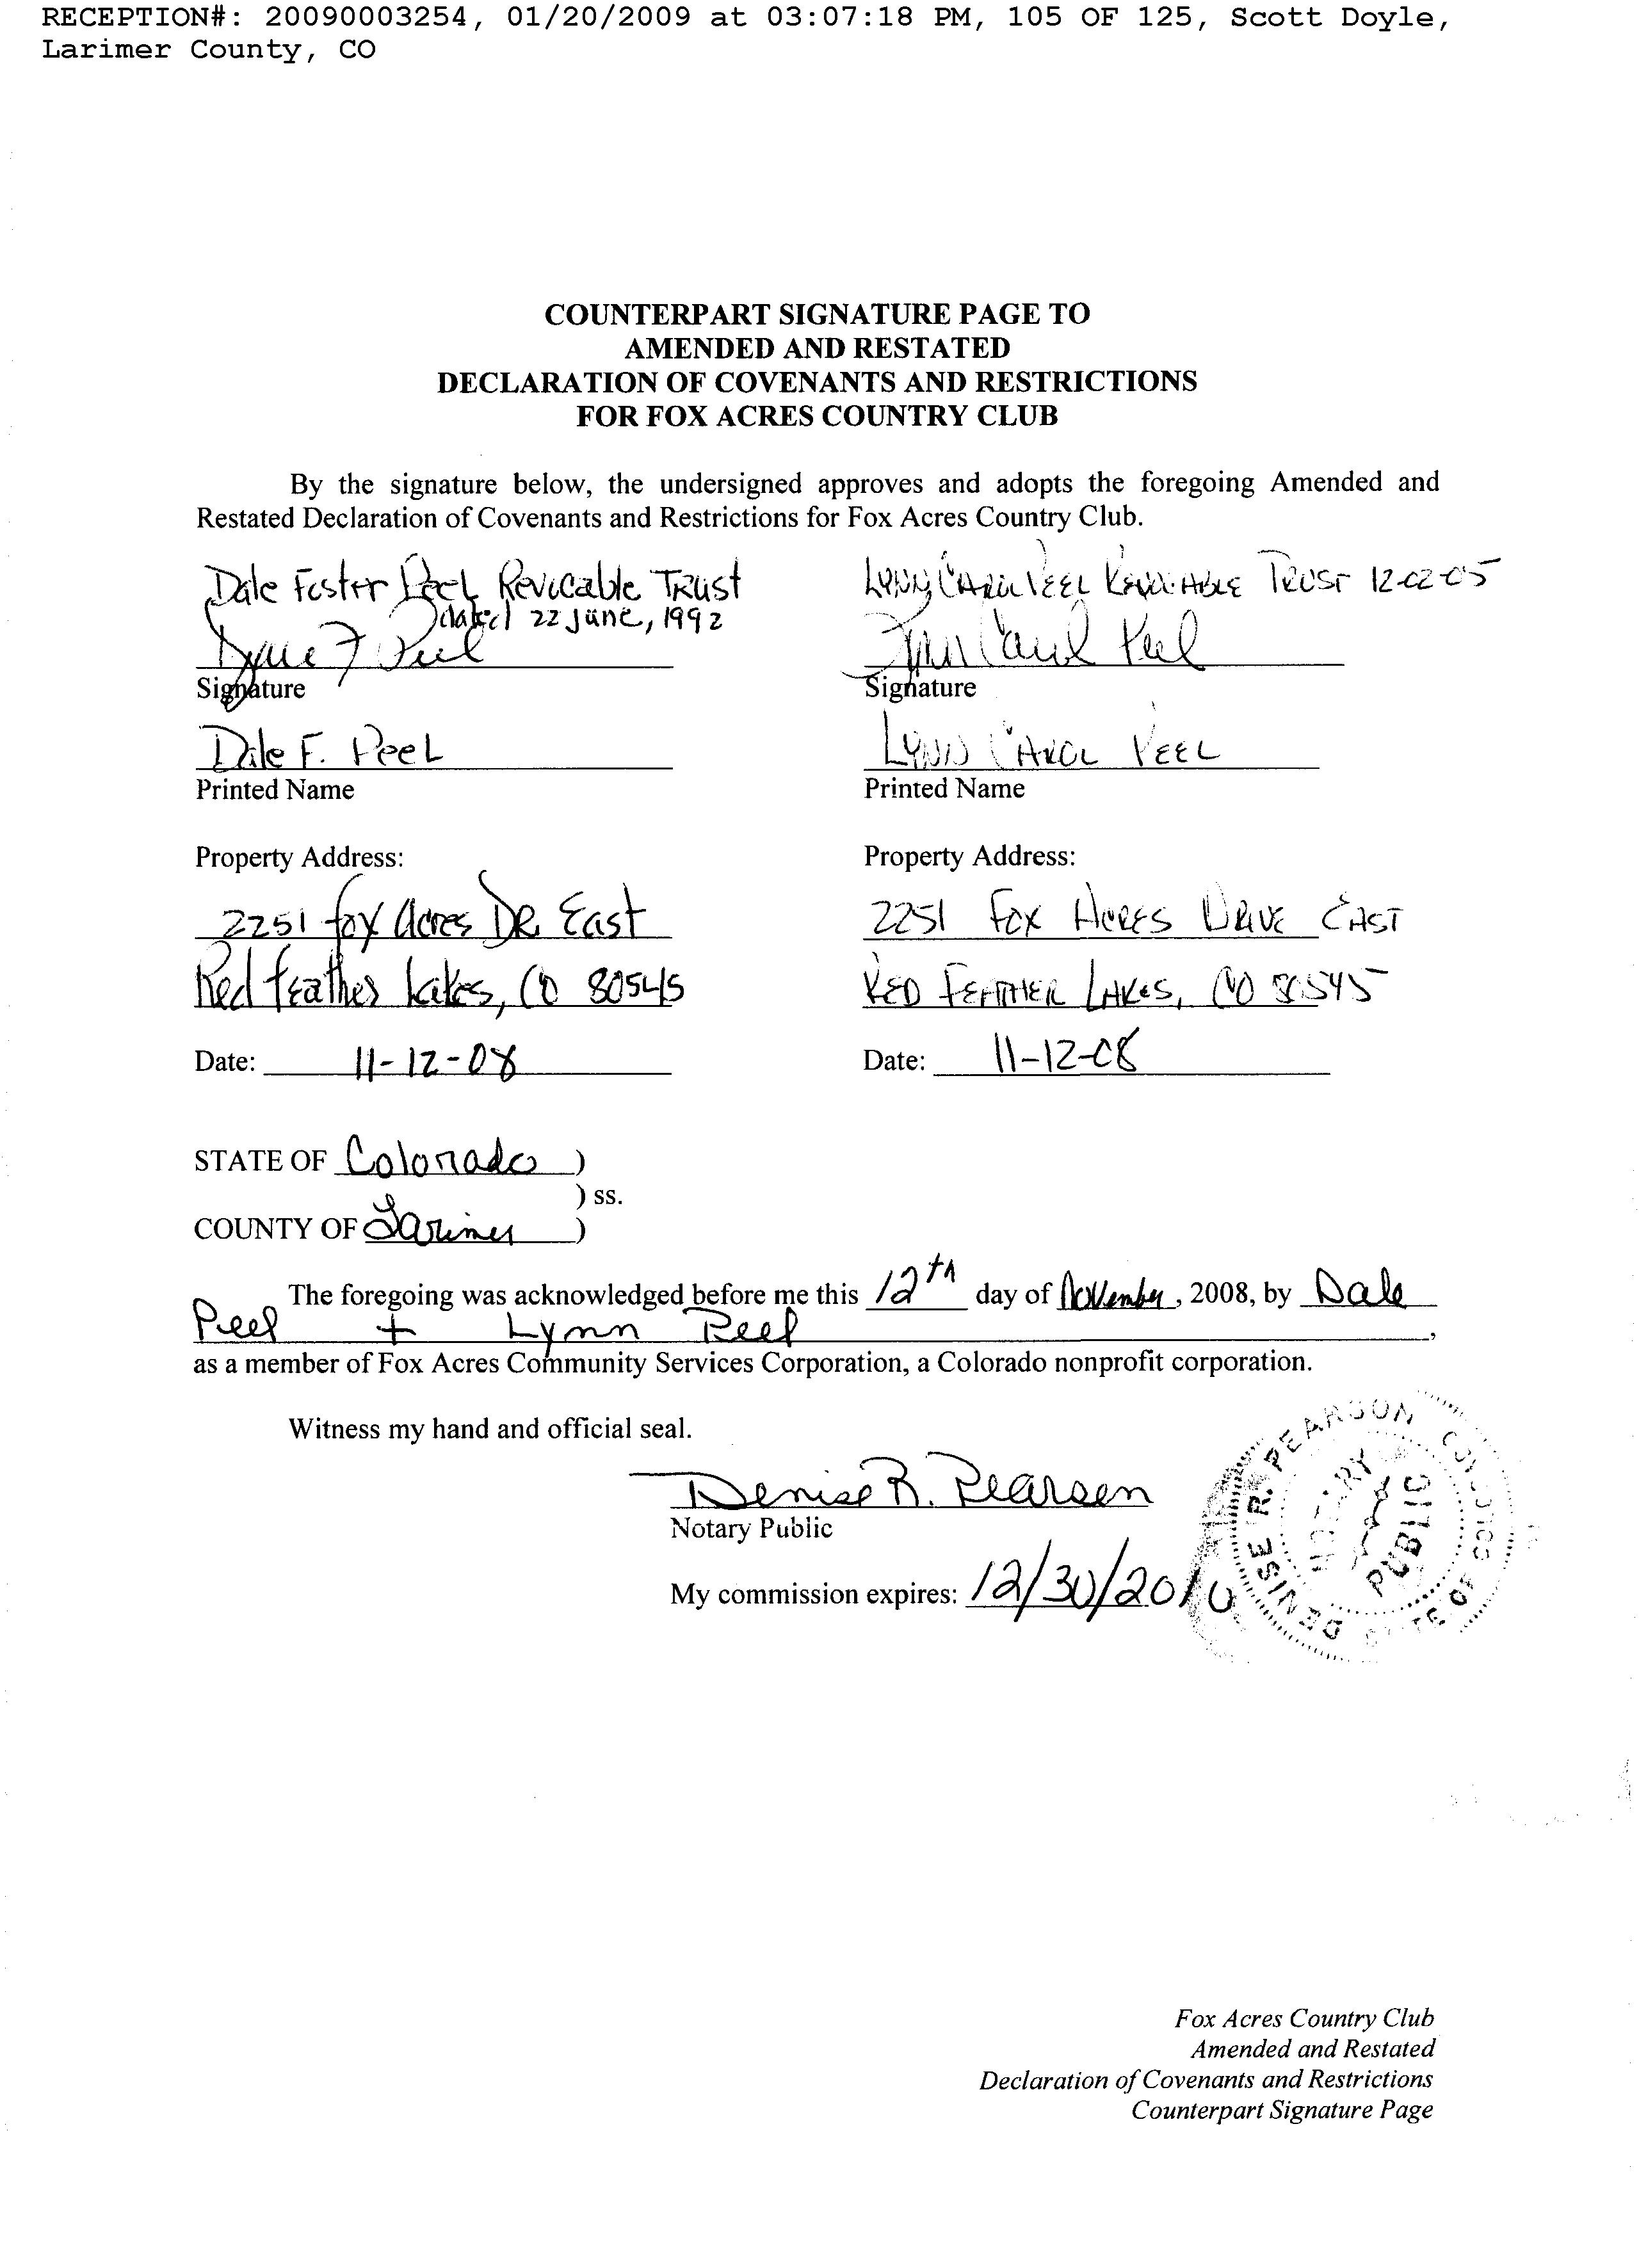 RECEPTION#: 20090003254, 01/20/2009 at 03:07:18 PM, 105 OF 125, Scott Doyle,
Larimer County, CO
COUNTERPART SIGNATURE PAGE TO
AMENDED AND RESTATED
DECLARATION OF COVENANTS AND RESTRICTIONS
FOR FOX ACRES COUNTRY CLUB
By the signature below, the undersigned approves and adopts the foregoing Amended and
Restated Declaration of Covenants and Restrictions for Fox Acres Country Club.
Dale Foster Peel Revocable Trust
dated 22 June, 1992
Dale F Peel
Signature
Dale F. Peel
Printed Name
Property Address:
2251 Fox Acres DR East
Red feather Lakes, CO 80545
Date: 11-12-08
LYNN CAROL PEEL REVOCABLE TRUST 12-02-05
Lynn Carol Peel
Signature
LYNN CAROL PEEL
Printed Name
Property Address:
2251 FOX ACRES DRIVE EAST
RED FEATHER LAKES, CO 80545
Date: 11-12-08
STATE OF Colorado )
) ss.
COUNTY OF Larimer )
The foregoing was acknowledged before me this 12th day of November, 2008, by Dale
Peel + Lynn Peel,
as a member of Fox Acres Community Services Corporation, a Colorado nonprofit corporation.
Witness my hand and official seal.
Denise R. Pearson
Notary Public
My commission expires: 12/30/2010
DENISE R. PEARSON
NOTARY
PUBLIC
STATE OF COLORADO
Fox Acres Country Club
Amended and Restated
Declaration of Covenants and Restrictions
Counterpart Signature Page